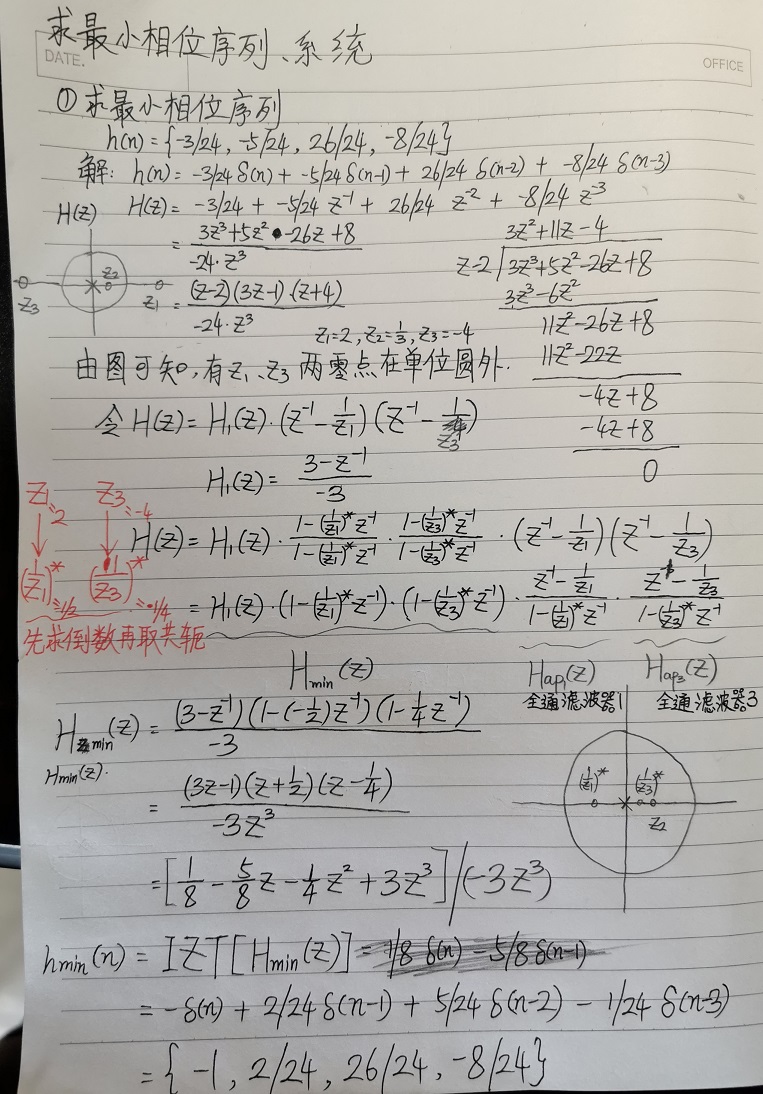 求最小相位序列、系统
DATE.
OFFICE
① 求最小相位序列
h(n) = {-3/24, -5/24, 26/24, -8/24}
解: h(n) = -3/24 δ(n) + -5/24 δ(n-1) + 26/24 δ(n-2) + -8/24 δ(n-3)
H(z) H(z) = -3/24 + -5/24 z⁻¹ + 26/24 z⁻² + -8/24 z⁻³
= (3z³+5z²-26z+8)/(-24·z³)
= (z-2)(3z-1)·(z+4)/(-24·z³)
z₁=2, z₂=1/3, z₃=-4
z₃ z₂ z₁
3z²+11z-4
z-2 3z³+5z²-26z+8
3z³-6z²
11z²-26z+8
11z²-22z
-4z+8
-4z+8
0
由图可知,有z₁、z₃两零点在单位圆外.
令 H(z) = H₁(z)·(z⁻¹ - 1/z₁)(z⁻¹ - 1/z₃)
H₁(z) = (3-z⁻¹)/(-3)
z₁=2 z₃=-4
(1/z₁)*=1/2 (1/z₃)*=-1/4
先求倒数再取共轭
H(z) = H₁(z)·(1-(1/z₁)*z⁻¹)/(1-(1/z₁)*z⁻¹)·(1-(1/z₃)*z⁻¹)/(1-(1/z₃)*z⁻¹)·(z⁻¹ - 1/z₁)(z⁻¹ - 1/z₃)
= H₁(z)·(1-(1/z₁)*z⁻¹)·(1-(1/z₃)*z⁻¹)·(z⁻¹ - 1/z₁)/(1-(1/z₁)*z⁻¹)·(z⁻¹ - 1/z₃)/(1-(1/z₃)*z⁻¹)
Hmin(z) Hap₁(z) Hap₃(z)
全通滤波器1 全通滤波器3
Hmin(z) = (3-z⁻¹)(1-(-1/2)z⁻¹)(1-1/4 z⁻¹)/(-3)
Hmin(z).
= (3z-1)(z+1/2)(z-1/4)/(-3z³)
(1/z₁)* (1/z₃)*
z₂
= [1/8 - 5/8 z - 1/4 z² + 3z³]/(-3z³)
hmin(n) = IZT[Hmin(z)] = 1/8 δ(n) - 5/8 δ(n-1)
= -δ(n) + 2/24 δ(n-1) + 5/24 δ(n-2) - 1/24 δ(n-3)
= {-1, 2/24, 26/24, -8/24}